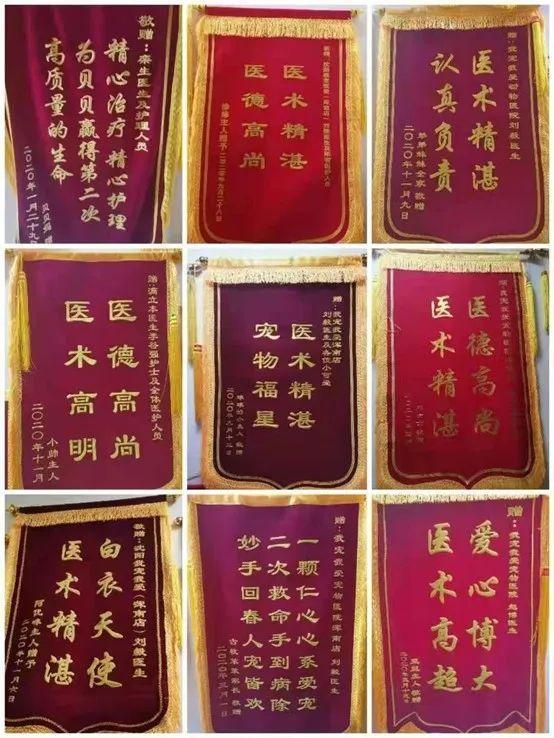 敬赠:秦生医生及护理人员
精心治疗 精心护理
为贝贝赢得第二次
高质量的生命
二〇二〇年一月二十九
医术精湛
医德高尚
二〇二〇年九月二十八日
赠:我宠我爱动物医院刘毅医生
医术精湛
认真负责
弟弟妹妹全家 敬赠
二〇二〇年十一月九日
医德高尚
医术高明
小帅主人
二〇二〇年十一月
赠:我宠我爱浑南店
刘毅医生及各位小可爱
医术精湛
宠物福星
医德高尚
医术精湛
敬赠:沈阳我宠我爱(浑南店)刘毅医生
白衣天使
医术精湛
二〇二〇年十一月六日
赠:我宠我爱宠物医院浑南店 刘毅医生
一颗仁心心系爱宠
二次救命手到病除
妙手回春人宠皆欢
二〇二〇年三月一日
赠:我宠我爱宠物医院 赵博医生
爱心博大
医术高超